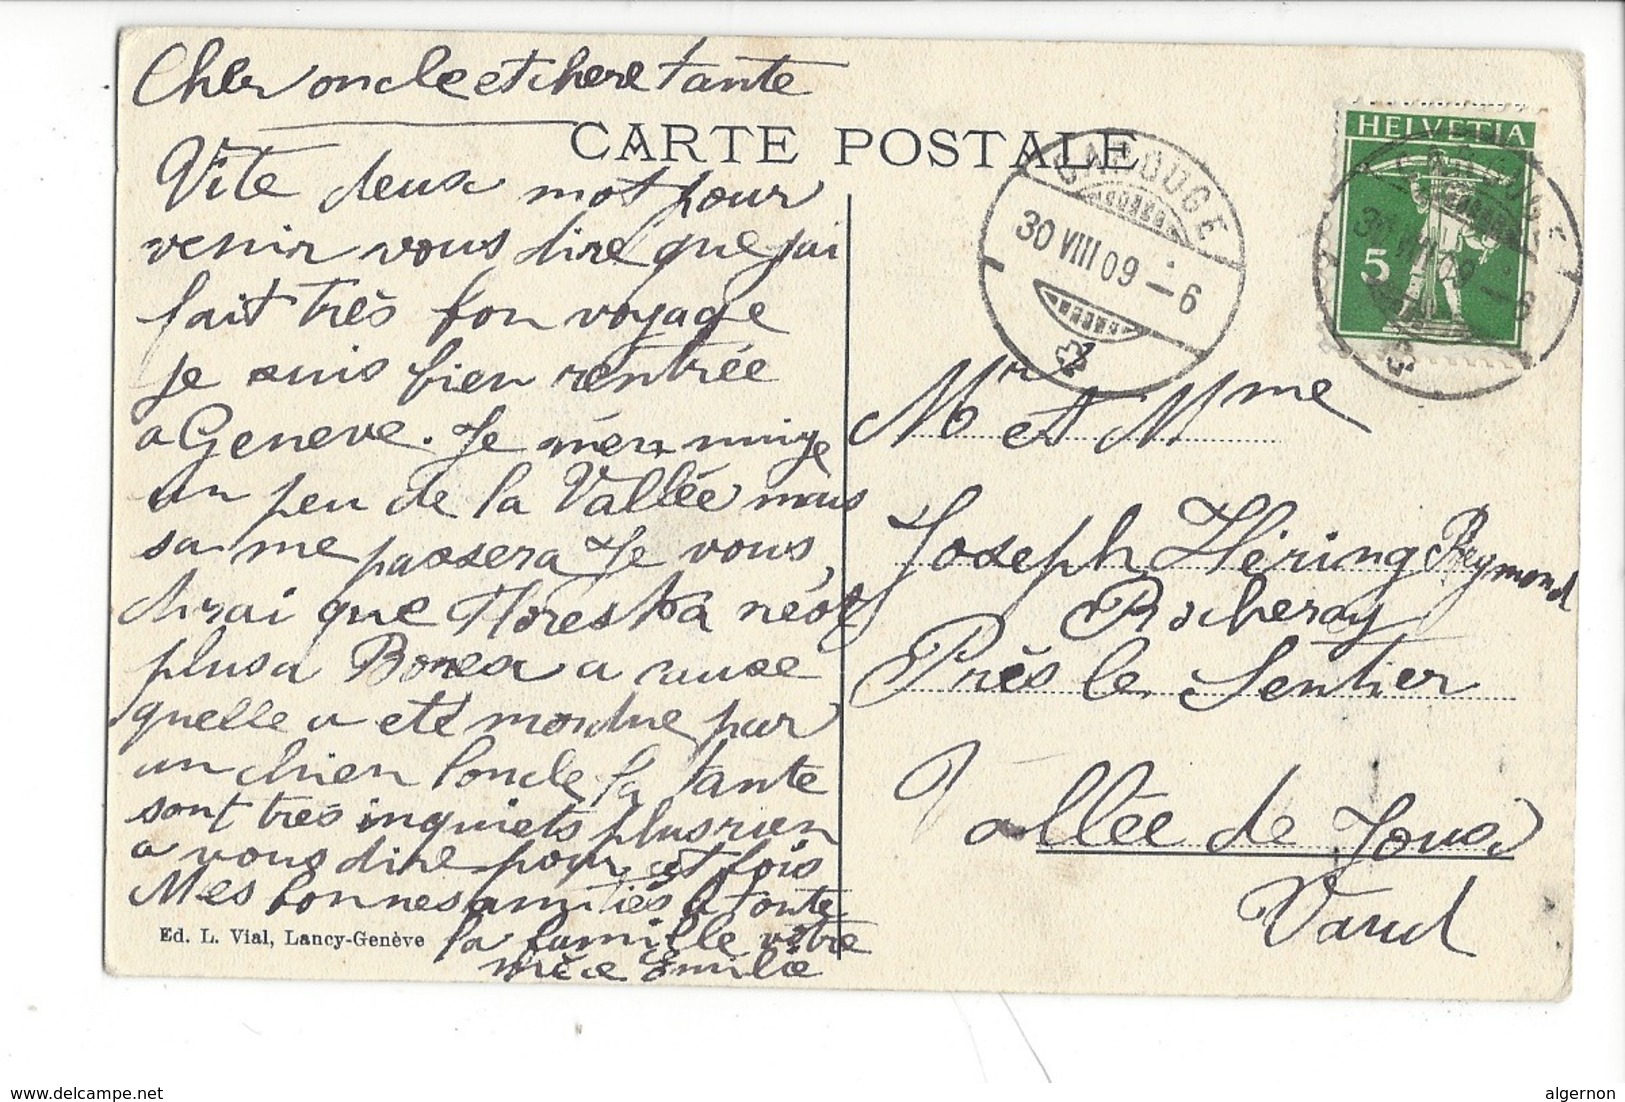 Cher oncle et chere tante
CARTE POSTALE
Vite deux mot pour
venir vous dire que jai
fait très bon voyage
je suis bien rentrée
a Geneve. Je
un peu de la Vallée mais
sa me passera Je vous
dirai que Floresta
plus a a cause
quelle a eté mordue par
un chien loncle la tante
sont très inquiets plus rien
a vous dire pour cet fois
Mes bonnes amitiés a toute
la famille votre
nièce Emilie
Ed. L. Vial, Lancy-Genève
CAROUGE
30 VIII 09 - 6
HELVETIA
5
CAROUGE
30 VIII 09 - 6
Mr et Mme
Joseph Héring Reymond
Rocheray
Près le Sentier
Vallée de Joux
Vaud
www.delcampe.net
algernon